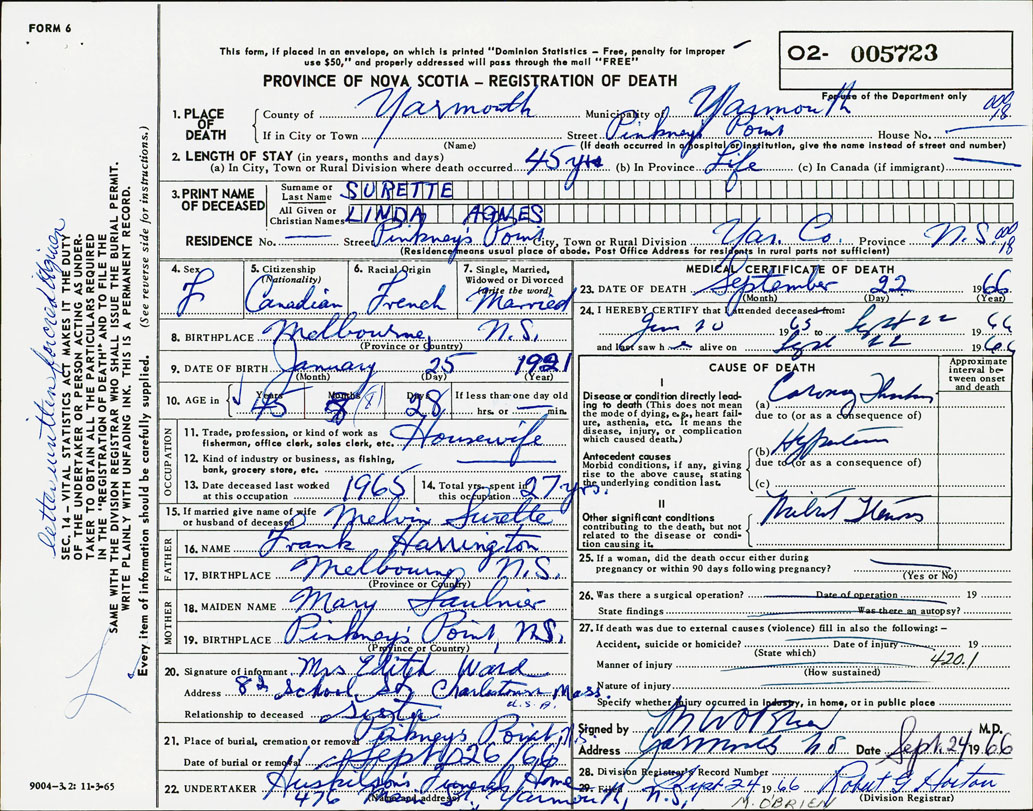 FORM 6
This form, if placed in an envelope, on which is printed "Dominion Statistics – Free, penalty for improper
use $50," and properly addressed will pass through the mail "FREE"
O2- 005723
For use of the Department only
PROVINCE OF NOVA SCOTIA – REGISTRATION OF DEATH
1. PLACE OF DEATH County of Yarmouth Municipality of Yarmouth
(Name)
If in City or Town Street Pinkney's Point House No.
(If death occurred in a hospital or institution, give the name instead of street and number)
2. LENGTH OF STAY (in years, months and days)
(a) In City, Town or Rural Division where death occurred 45 yrs (b) In Province Life (c) In Canada (if immigrant)
3. PRINT NAME OF DECEASED Surname or Last Name SURETTE
All Given or Christian Names LINDA AGNES
RESIDENCE No. Street Pinkney's Point City, Town or Rural Division Yar. Co. Province N.S.
(Residence means usual place of abode. Post Office Address for residents in rural parts not sufficient)
4. Sex F
5. Citizenship (Nationality) Canadian
6. Racial Origin French
7. Single, Married, Widowed or Divorced (write the word) Married
8. BIRTHPLACE Melbourne, N.S.
(Province or Country)
9. DATE OF BIRTH January 25 1921
(Month) (Day) (Year)
10. AGE in Years 45 Months 8 Days 28 If less than one day old hrs. or min.
OCCUPATION
11. Trade, profession, or kind of work as fisherman, office clerk, sales clerk, etc. Housewife
12. Kind of industry or business, as fishing, bank, grocery store, etc.
13. Date deceased last worked at this occupation 1965
14. Total yrs. spent in this occupation 27 yrs.
15. If married give name of wife or husband of deceased Melvin Surette
FATHER
16. NAME Frank Harrington
17. BIRTHPLACE Melbourne N.S.
(Province or Country)
MOTHER
18. MAIDEN NAME Mary Saulnier
19. BIRTHPLACE Pinkney's Point, N.S.
(Province or Country)
20. Signature of informant Mrs Edith Ward
Address 82 School St, Charlestown, Mass.
U.S.A.
Relationship to deceased Sister
21. Place of burial, cremation or removal Pinkney's Point N.S.
Date of burial or removal Sept 26/66
22. UNDERTAKER Huskilson's Funeral Home
(Name and address) 476 Main St. Yarmouth, N.S.
MEDICAL CERTIFICATE OF DEATH
23. DATE OF DEATH September 22 1966
(Month) (Day) (Year)
24. I HEREBY CERTIFY that I attended deceased from:
Jan 20 1965 to Sept 22 1966
and last saw h alive on Sept 22 1966
CAUSE OF DEATH
Approximate interval between onset and death
I
Disease or condition directly leading to death (This does not mean the mode of dying, e.g., heart failure, asthenia, etc. It means the disease, injury, or complication which caused death.)
(a) Coronary
due to (or as a consequence of)
Antecedent causes
Morbid conditions, if any, giving rise to the above cause, stating the underlying condition last.
(b)
due to (or as a consequence of)
(c)
II
Other significant conditions contributing to the death, but not related to the disease or condition causing it.
25. If a woman, did the death occur either during pregnancy or within 90 days following pregnancy?
(Yes or No)
26. Was there a surgical operation? Date of operation 19
State findings Was there an autopsy?
27. If death was due to external causes (violence) fill in also the following:–
Accident, suicide or homicide? Date of injury 19
(State which)
Manner of injury 420.1
(How sustained)
Nature of injury
Specify whether injury occurred in Industry, in home, or in public place
Signed by M.D.
Address Yarmouth NS Date Sept. 24 1966
28. Division Registrar's Record Number
29. Filed Sept 24 1966 Robert G Horton
(Division Registrar)
M. O'BRIEN
SEC. 14 – VITAL STATISTICS ACT MAKES IT THE DUTY
OF THE UNDERTAKER OR PERSON ACTING AS UNDER-
TAKER TO OBTAIN ALL THE PARTICULARS REQUIRED
IN THE "REGISTRATION OF DEATH" AND TO FILE THE
SAME WITH THE DIVISION REGISTRAR WHO SHALL ISSUE THE BURIAL PERMIT.
WRITE PLAINLY WITH UNFADING INK. THIS IS A PERMANENT RECORD.
Every item of information should be carefully supplied. (See reverse side for instructions.)
9004–3.2: 11-3-65